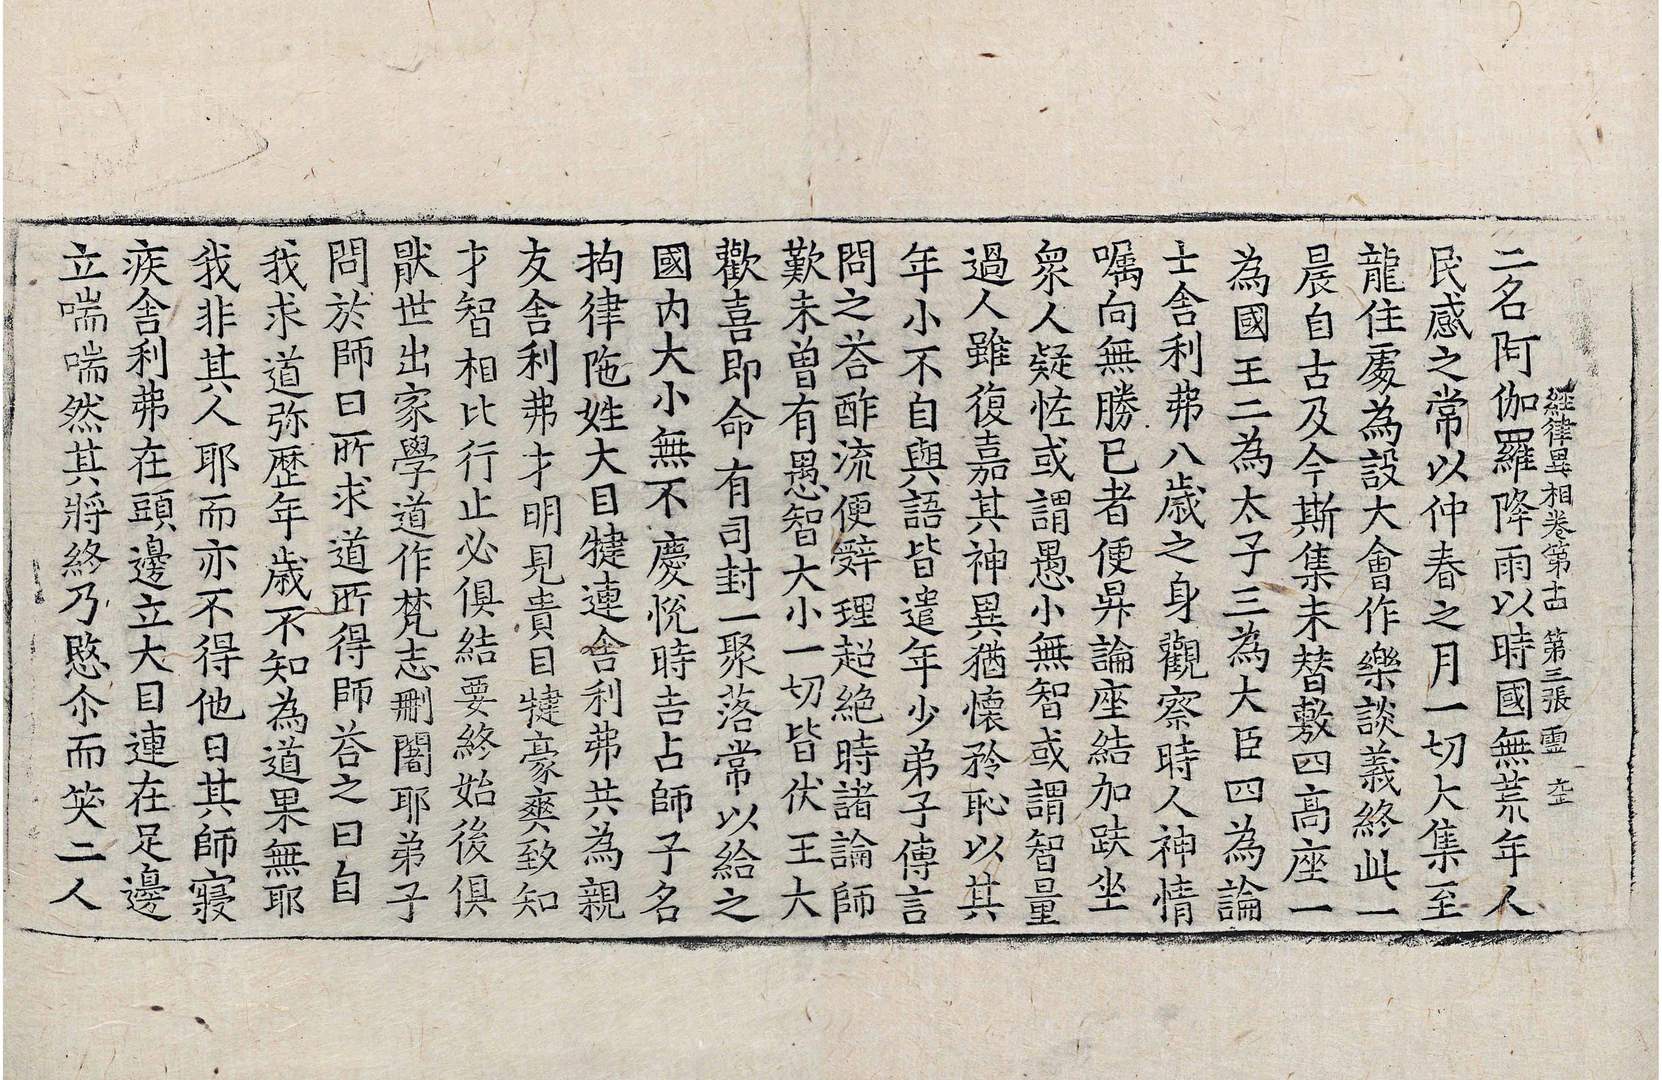 經律異相卷第十四 第三張 靈
二名阿伽羅降雨以時國無荒年人
民感之常以仲春之月一切大集至
龍住處為設大會作樂談義終此一
晨自古及今斯集未替敷四高座一
為國王二為太子三為大臣四為論
士舍利弗八歲之身觀察時人神情
囑向無勝已者便昇論座結加趺坐
眾人疑恠或謂愚小無智或謂智量
過人雖復嘉其神異猶懷矜恥以其
年小不自與語皆遣年少弟子傳言
問之荅酢流便辤理超絕時諸論師
歎未曾有愚智大小一切皆伏王大
歡喜即命有司封一聚落常以給之
國內大小無不慶悅時吉占師子名
拘律陁姓大目犍連舍利弗共為親
友舍利弗才明見貴目犍豪爽致知
才智相比行止必俱結要終始後俱
猒世出家學道作梵志刪闍耶弟子
問於師曰所求道所得師荅之曰自
我求道弥歷年歲不知為道果無耶
我非其人耶而亦不得他日其師寢
疾舍利弗在頭邊立大目連在足邊
立喘喘然其將終乃愍尒而笑二人